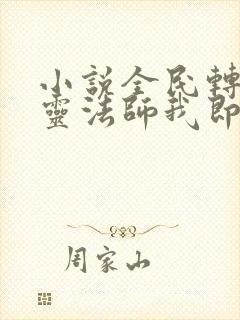 小說全民轉
靈法師我即
周家山